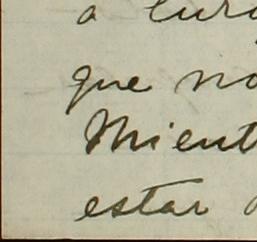 a
que no
Mient
estar